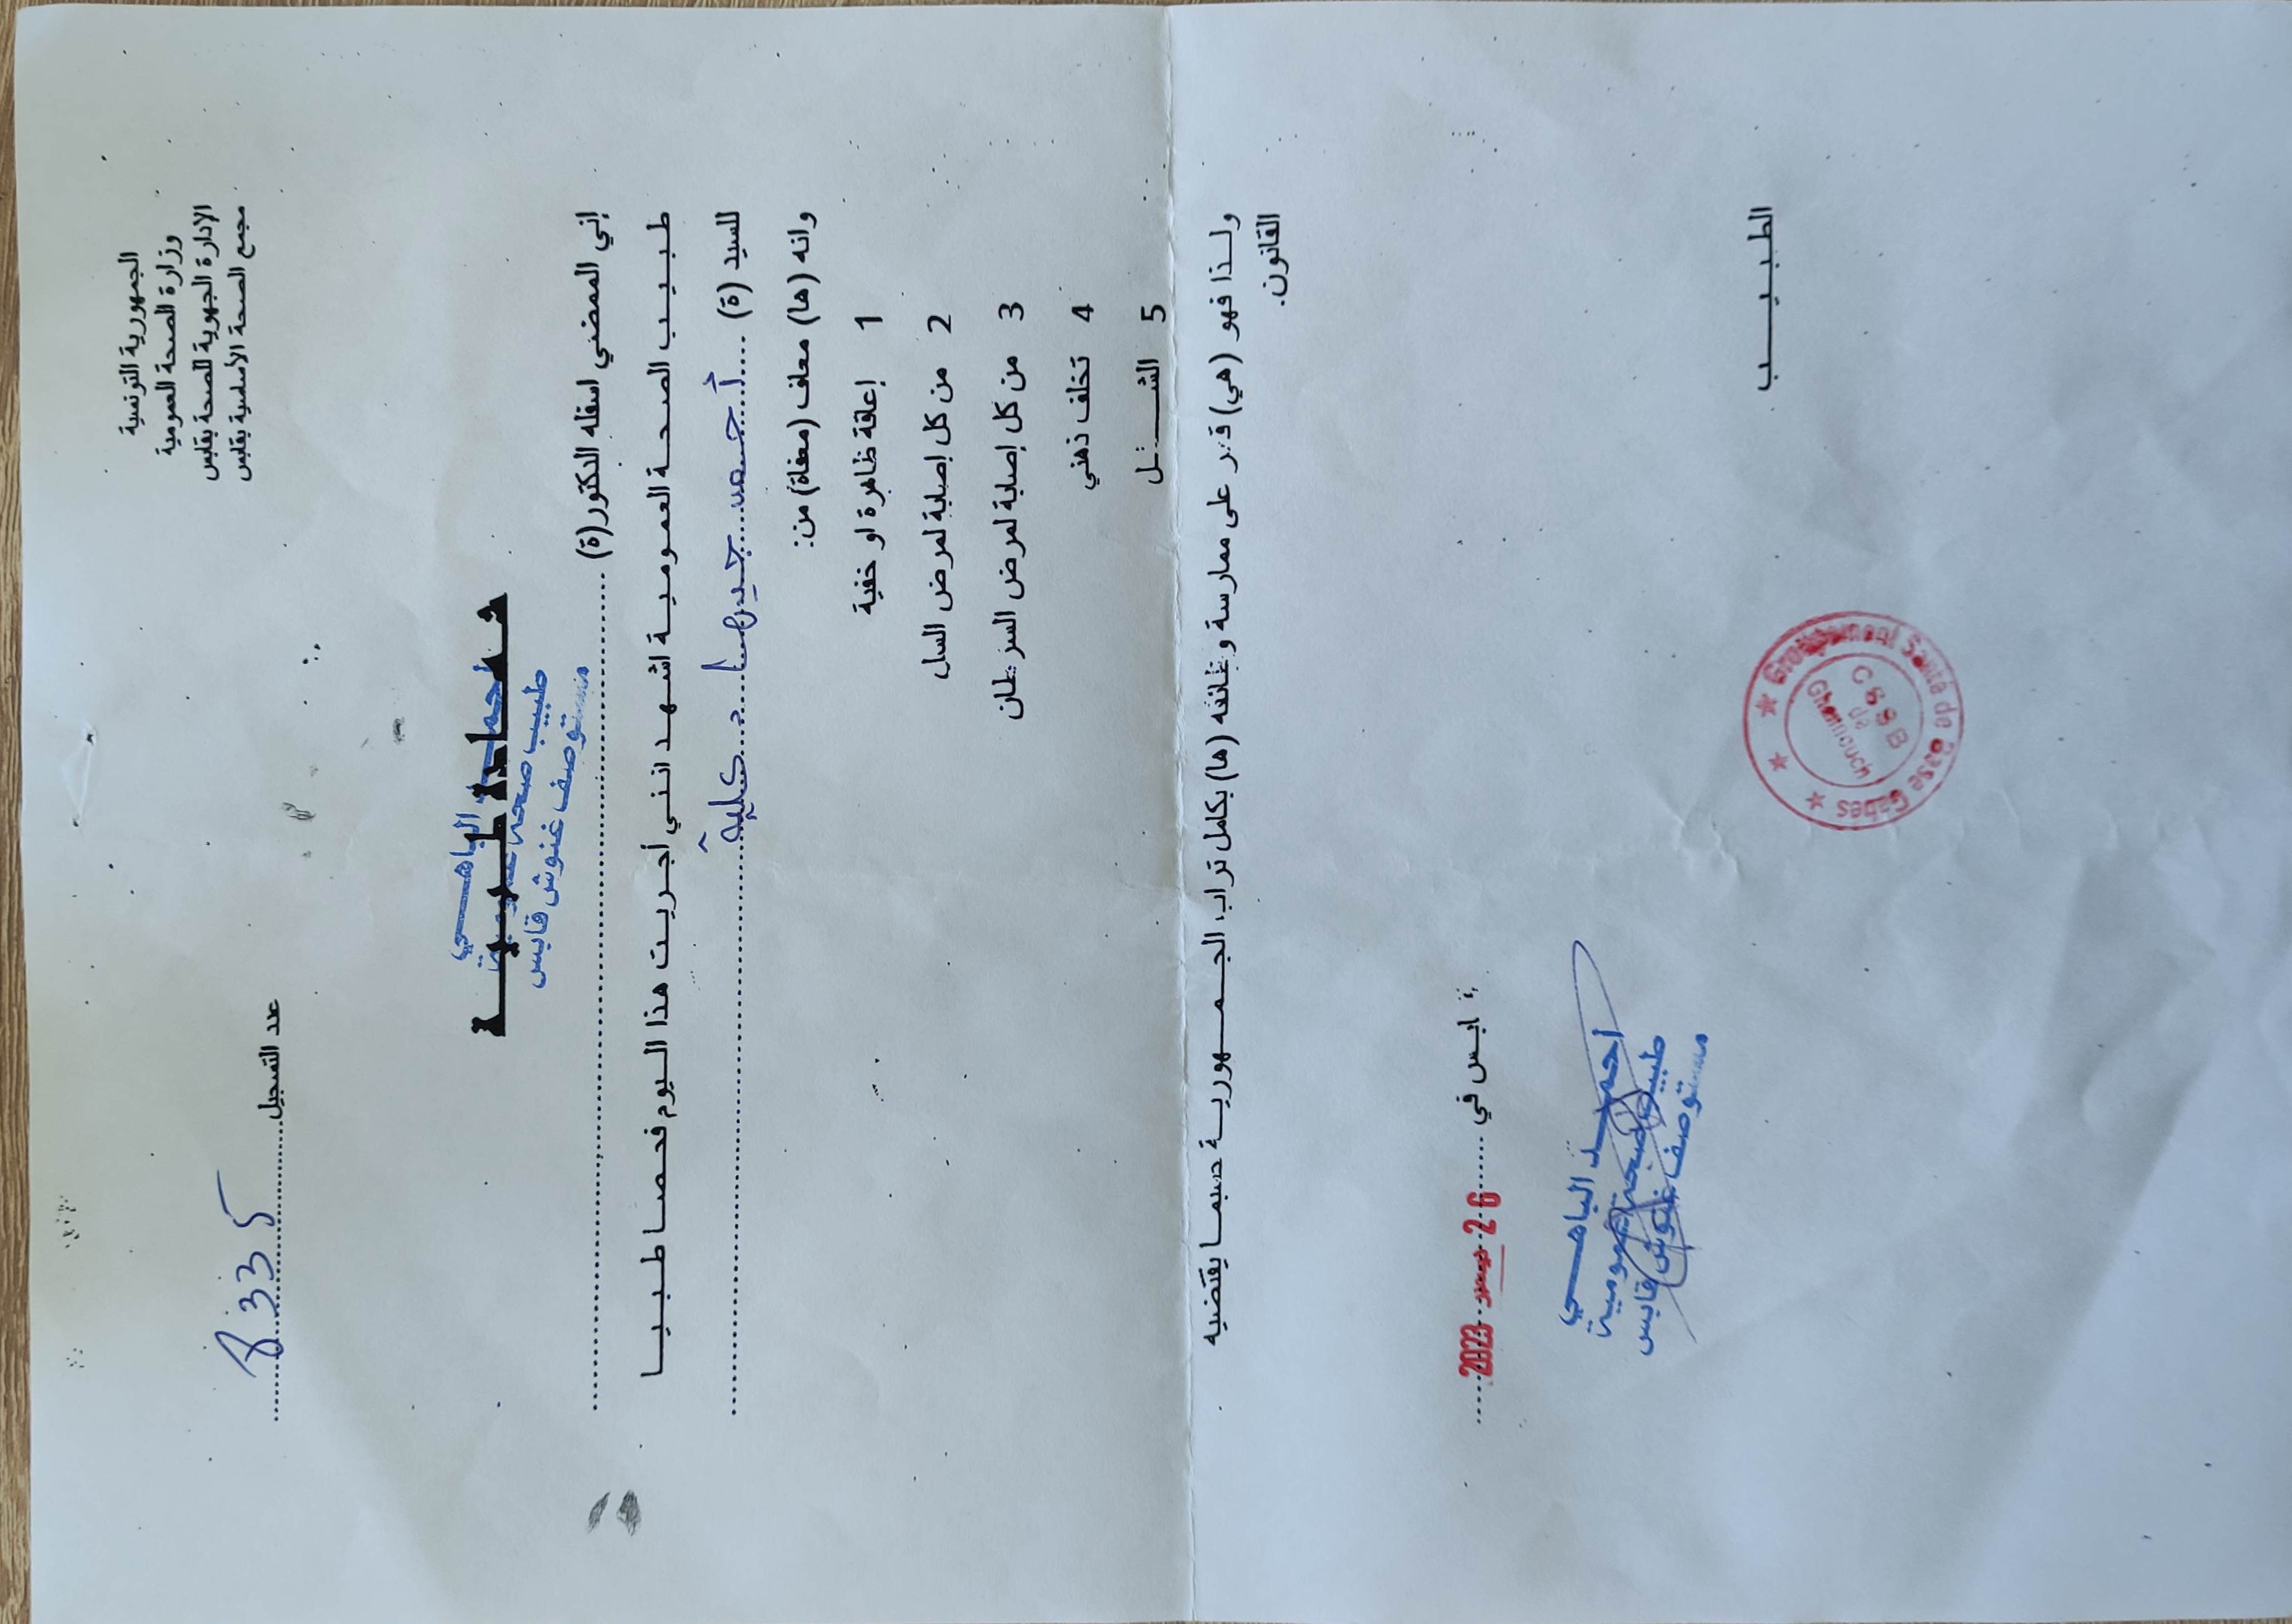 الجمهورية التونسية
وزارة الصحة العمومية
الإدارة الجهوية للصحة بقابس
مجمع الصحة الأساسية بقابس
عدد التسجيل 8335
شهادة طبية
أحمد الباهي
طبيب صحة عمومية
مستوصف غنوش قابس
إني الممضي اسفله الدكتور(ة)
طبيب الصحة العمومية اشهد انني أجريت هذا اليوم فحصا طبيا
للسيد (ة)
وانه (ها) معاف (معفاة) من:
1 إعاقة ظاهرة او خفية
2 من كل إصابة لمرض السل
3 من كل إصابة لمرض السرطان
4 تخلف ذهني
5 الشلل
ولذا فهو (هي) قادر على ممارسة وظائفه (ها) بكامل تراب الجمهورية حسبما يقتضيه
القانون.
قابس في 26 2023
أحمد الباهي
طبيب صحة عمومية
مستوصف غنوش قابس
الطبيب
Groupement Santé de Base Gabes
CSSB
de
Ghannouch